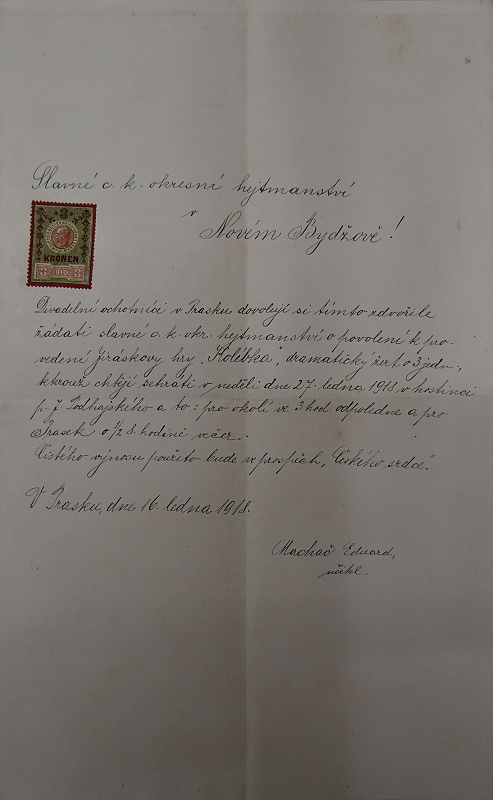 Slavné c. k. okresní hejtmanství
v
Novém Bydžově!
3
KRONEN
3 1910 3
Divadelní ochotníci v Prasku dovolují si tímto zdvořile
žádati slavné c. k. okr. hejtmanství o povolení k pro-
vedení Jiráskovy hry „Kolébka", dramatický žert o 3 jedn.,
kterouž chtějí sehráti v neděli dne 27. ledna 1918 v hostinci
p. J. Podhajského a to: pro okolí ve 3 hod odpoledne a pro
Prasek o 1/2 8. hodině večer.
Čistého výnosu použito bude ve prospěch „Českého srdce".
V Prasku, dne 16. ledna 1918.
Machač Eduard,
učitel.